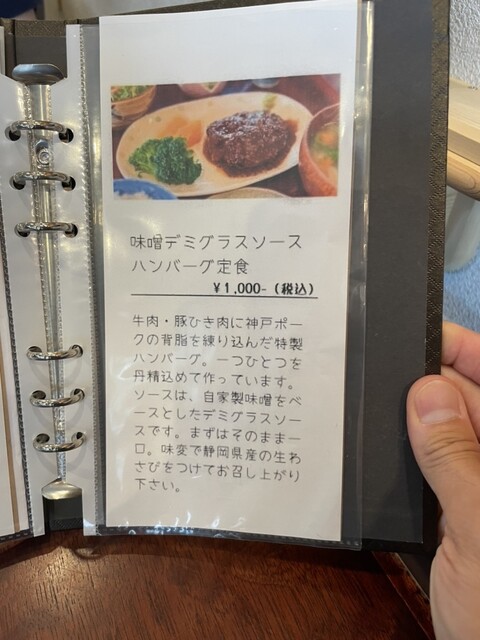 味噌デミグラスソース
ハンバーグ定食
¥1,000-(税込)
牛肉・豚ひき肉に神戸ポー
クの背脂を練り込んだ特製
ハンバーグ。一つひとつを
丹精込めて作っています。
ソースは、自家製味噌をベ
ースとしたデミグラスソー
スです。まずはそのまま一
口。味変で静岡県産の生わ
さびをつけてお召し上がり
下さい。